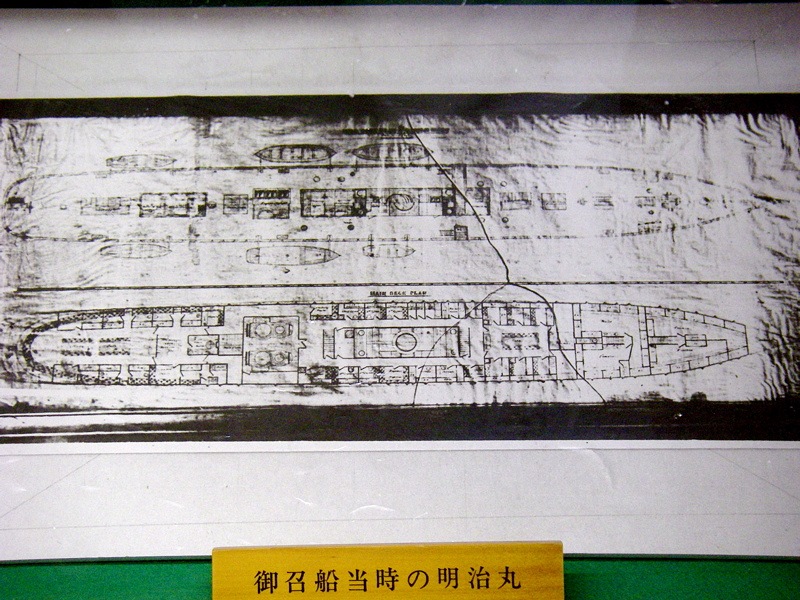 MAIN DECK PLAN
御召船当時の明治丸